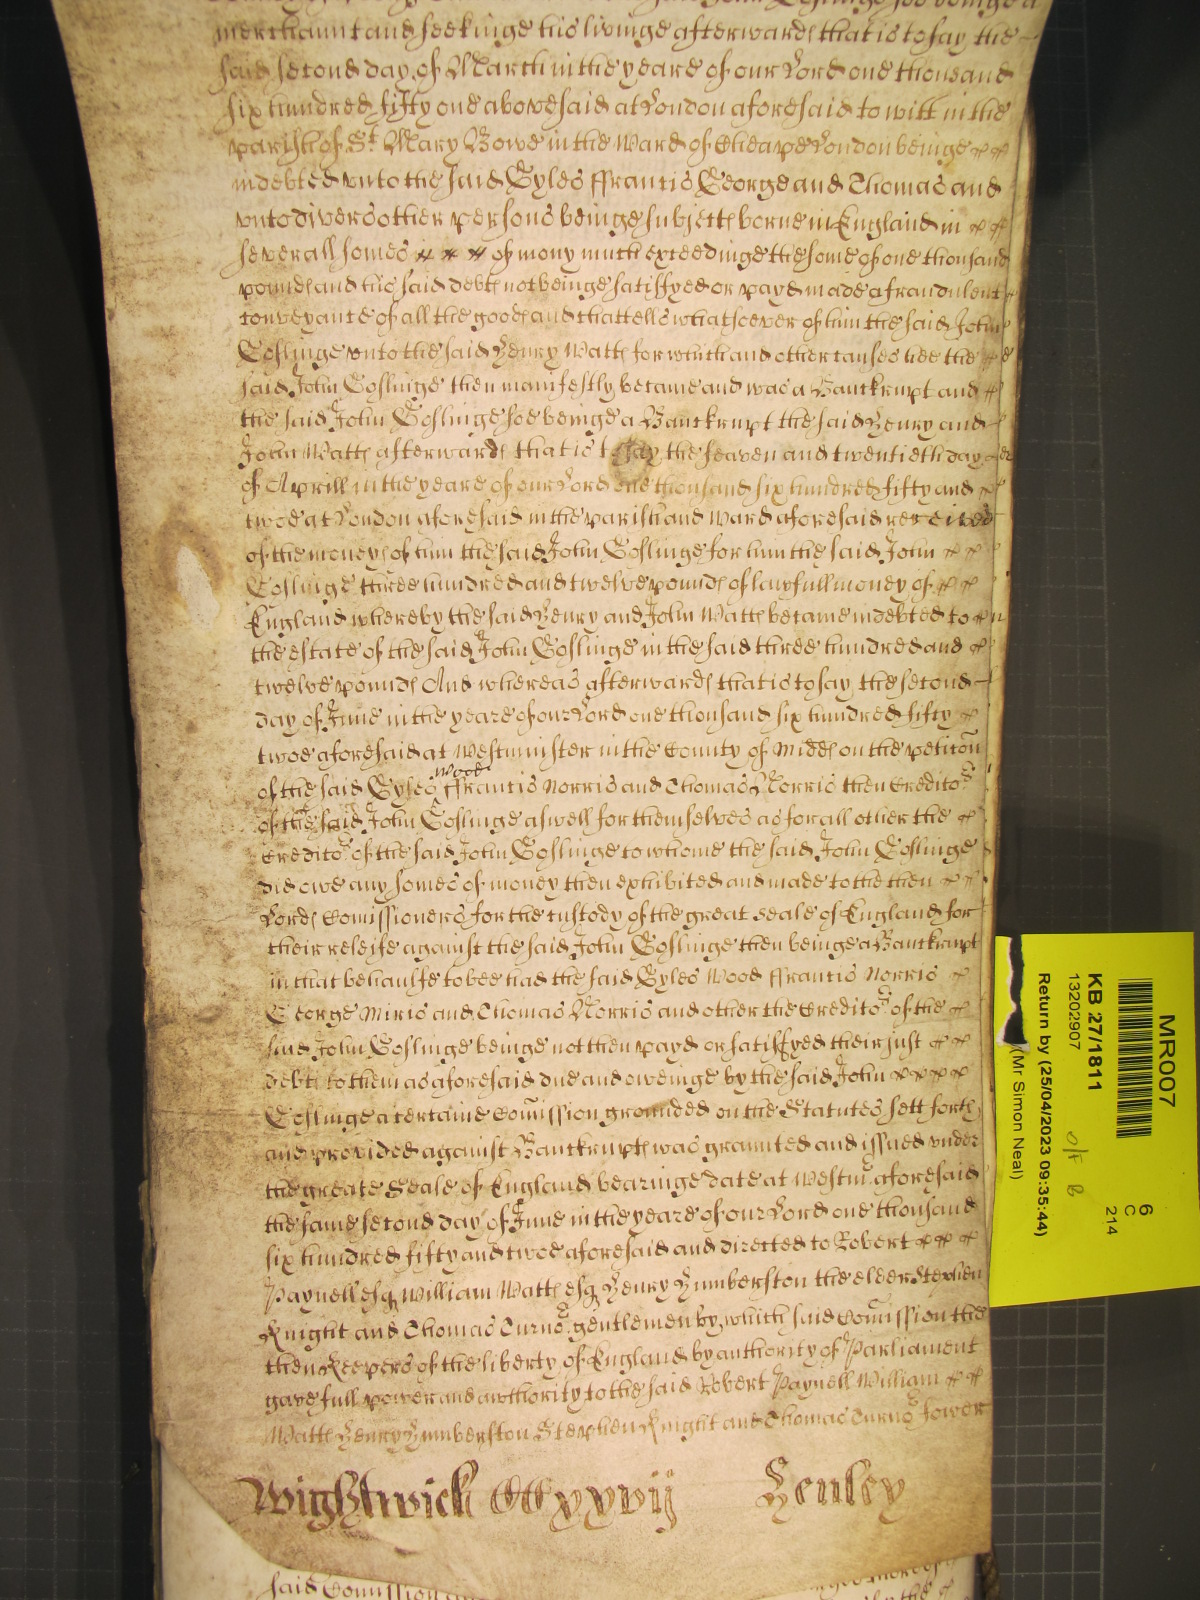 merchaunt and seekinge his livinge afterward that is to say the
said second day of March in the yeare of our Lord one thousand
six hundred fifty one abovesaid at London aforesaid to witt in the
parish of St Mary Bowe in the Ward of Cheape London beinge
indebted unto the said Gyles ffrancis George and Thomas and
unto divers other persons beinge subjects borne in England in
severall somes of mony much exceedinge the some of one thousand
pounds and his said debts not beinge satisfyed or payd made a fraudulent
conveyance of all the goods and chattells whatsoever of him the said John
Goslinge unto the said Henry Watts for which and other causes hee the
said John Goslinge then manifestly became and was a Banckrupt and
the said John Goslinge soe beinge a Banckrupt the said Henry and
John Watts afterwards that is to say the seaven and twentieth day
of Aprill in the yeare of our Lord one thousand six hundred fifty and
twoe at London aforesaid in the parish and Ward aforesaid received
of the moneys of him the said John Goslinge for him the said John
Goslinge three hundred and twelve pounds of lawfull money of
England whereby the said Henry and John Watts became indebted to
the estate of the said John Goslinge in the said three hundred and
twelve pounds And whereas afterwards that is to say the second
day of June in the yeare of our Lord one thousand six hundred fifty
twoe aforesaid at Westminster in the County of Midds on the peticon
of the said Gyles Wood ffrancis Norris and Thomas Norris then Creditors
of the said John Goslinge aswell for themselves as for all other the
Creditors of the said John Goslinge to whome the said John Goslinge
did owe any somes of money then exhibited and made to the then
Lords Comissioners for the custody of the great seale of England for
their releife against the said John Goslinge then beinge a Banckrupt
in that behaulfe to bee had the said Gyles Wood ffrancis Norris
George Miris and Thomas Norris and other the Creditors of the
said John Goslinge beinge not then payd or satisfyed their just
debts to them as aforesaid due and oweinge by the said John
Goslinge a certaine Comission grounded on the Statutes sett forth
and provided against Banckrupts was graunted and issued under
the greate Seale of England bearinge date at Westm aforesaid
the same second day of June in the yeare of our Lord one thousand
six hundred fifty and twoe aforesaid and directed to Robert
Paynell esq William Watts esq Henry Humberston the elder Stephen
Knight and Thomas Turnor gentlemen by which said Comission the
then Keepers of the liberty of England by authority of Parliament
gave full power and authority to the said Robert Paynell William
Watts Henry Humberston Stephen Knight and Thomas Turnor fower
Wightwick CCxxvij Henley
said Comission
MR007
KB 27/1811
13202907
Return by (25/04/2023 09:35:44)
(Mr Simon Neal)
6
C
214
O/F B